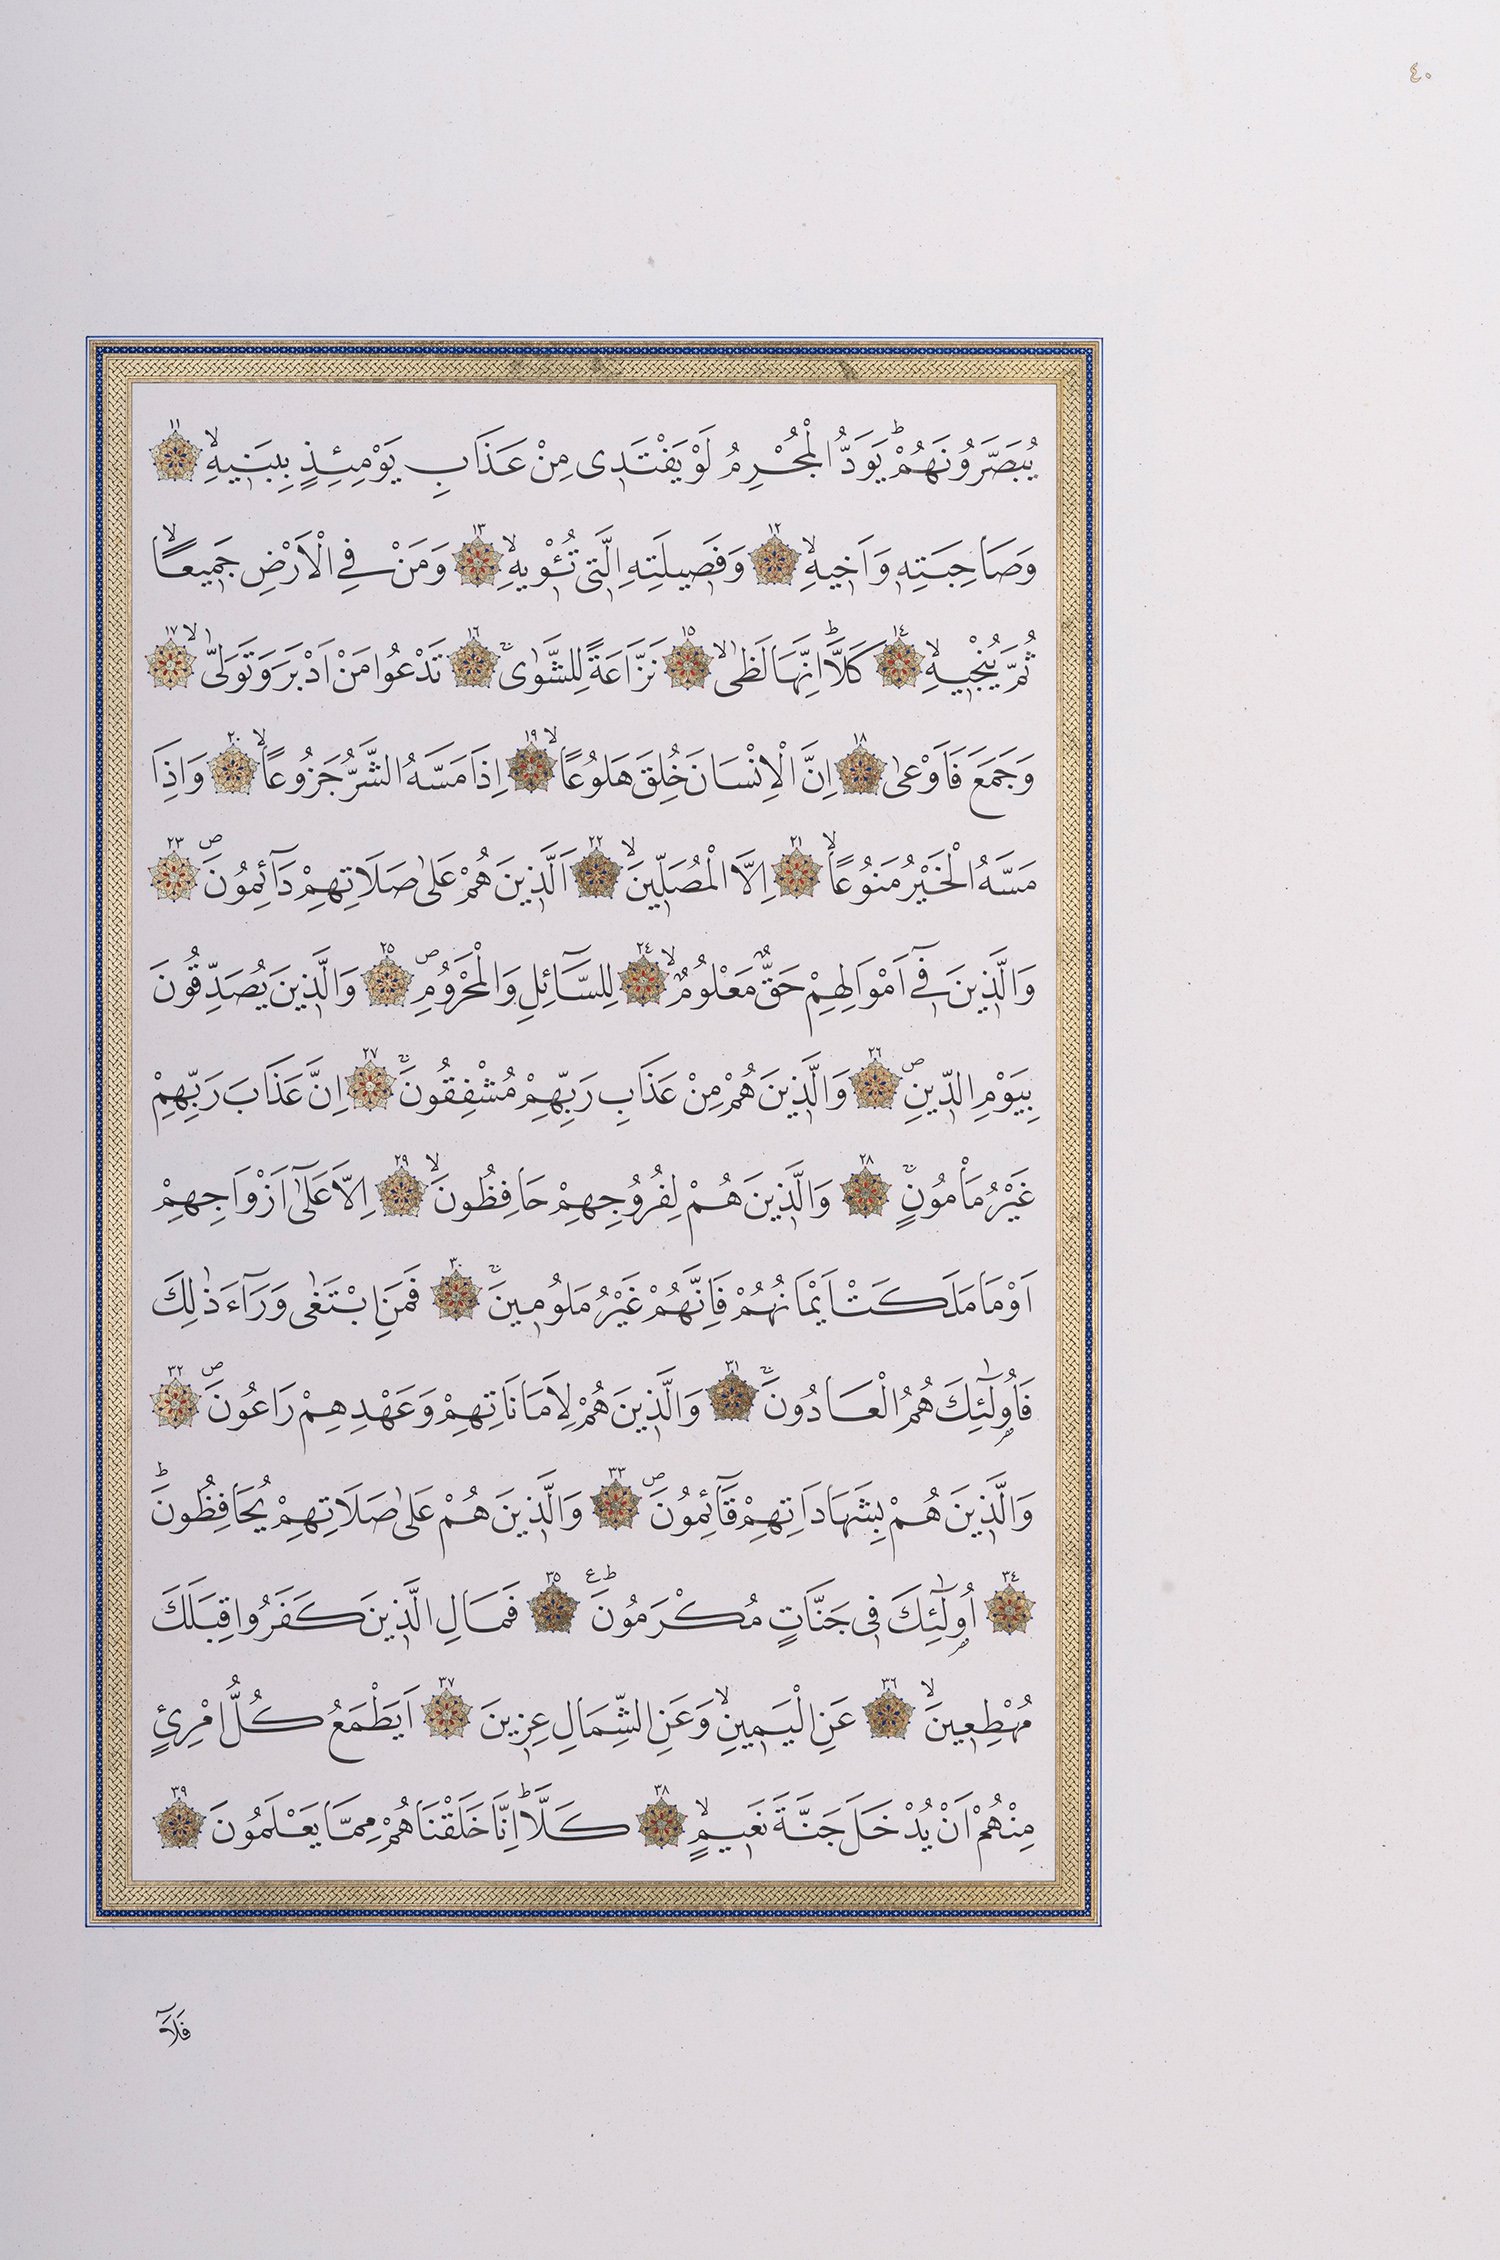 ٤٠
يُبَصَّرُونَهُمْ ط يَوَدُّ الْمُجْرِمُ لَوْ يَفْتَدِى مِنْ عَذَابِ يَوْمِئِذٍ بِبَنِيهِ لا ١١
وَصَاحِبَتِهِ وَاَخِيهِ لا ١٢ وَفَصِيلَتِهِ الَّتِى تُـْٔوِيهِ لا ١٣ وَمَنْ فِى الْاَرْضِ جَمِيعًا لا
ثُمَّ يُنْجِيهِ لا ١٤ كَلَّا ط اِنَّهَا لَظٰى لا ١٥ نَزَّاعَةً لِلشَّوٰى ١٦ تَدْعُوا مَنْ اَدْبَرَ وَتَوَلّٰى لا ١٧
وَجَمَعَ فَاَوْعٰى ١٨ اِنَّ الْاِنْسَانَ خُلِقَ هَلُوعًا لا ١٩ اِذَا مَسَّهُ الشَّرُّ جَزُوعًا لا ٢٠ وَاِذَا
مَسَّهُ الْخَيْرُ مَنُوعًا لا ٢١ اِلَّا الْمُصَلِّينَ لا ٢٢ اَلَّذِينَ هُمْ عَلٰى صَلَاتِهِمْ دَآئِمُونَ ص ٢٣
وَالَّذِينَ فِٓى اَمْوَالِهِمْ حَقٌّ مَعْلُومٌ لا ٢٤ لِلسَّآئِلِ وَالْمَحْرُومِ ص ٢٥ وَالَّذِينَ يُصَدِّقُونَ
بِيَوْمِ الدِّينِ ص ٢٦ وَالَّذِينَ هُمْ مِنْ عَذَابِ رَبِّهِمْ مُشْفِقُونَ ٢٧ اِنَّ عَذَابَ رَبِّهِمْ
غَيْرُ مَأْمُونٍ ٢٨ وَالَّذِينَ هُمْ لِفُرُوجِهِمْ حَافِظُونَ لا ٢٩ اِلَّا عَلٰٓى اَزْوَاجِهِمْ
اَوْ مَا مَلَكَتْ اَيْمَانُهُمْ فَاِنَّهُمْ غَيْرُ مَلُومِينَ ٣٠ فَمَنِ ابْتَغٰى وَرَآءَ ذٰلِكَ
فَاُولٰٓئِكَ هُمُ الْعَادُونَ ٣١ وَالَّذِينَ هُمْ لِاَمَانَاتِهِمْ وَعَهْدِهِمْ رَاعُونَ ص ٣٢
وَالَّذِينَ هُمْ بِشَهَادَاتِهِمْ قَآئِمُونَ ص ٣٣ وَالَّذِينَ هُمْ عَلٰى صَلَاتِهِمْ يُحَافِظُونَ ط
٣٤ اُولٰٓئِكَ فِى جَنَّاتٍ مُكْرَمُونَ ط ع ٣٥ فَمَالِ الَّذِينَ كَفَرُوا قِبَلَكَ
مُهْطِعِينَ لا ٣٦ عَنِ الْيَمِينِ لا وَعَنِ الشِّمَالِ عِزِينَ ٣٧ اَيَطْمَعُ كُلُّ امْرِئٍ
مِنْهُمْ اَنْ يُدْخَلَ جَنَّةَ نَعِيمٍ لا ٣٨ كَلَّا ط اِنَّا خَلَقْنَاهُمْ مِمَّا يَعْلَمُونَ ٣٩
فَلَآ